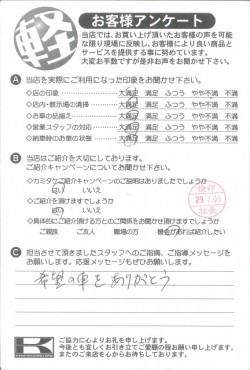 軽
お客様アンケート
当店では、お買い上げ頂いたお客様の声を可能
な限り現場に反映し、お客様により良い商品と
サービスを提供する事に努めています。
大変お手数ですが是非お声をお聞かせ下さい。
A 当店を実際にご利用になった印象をお聞かせ下さい。
◇店の印象 大満足 満足 ふつう やや不満 不満
◇店内・展示場の清掃 大満足 満足 ふつう やや不満 不満
◇お車の品揃え 大満足 満足 ふつう やや不満 不満
◇営業スタッフの対応 大満足 満足 ふつう やや不満 不満
◇納車時のお車の状態 大満足 満足 ふつう やや不満 不満
B 当店はご紹介を大切にしております。
ご紹介キャンペーンについてお聞かせ下さい。
◇カミタケご紹介キャンペーンのご説明はありましたでしょうか
はい いいえ
◇ご紹介を頂けますでしょうか
はい いいえ
◇具体的にご紹介頂ける方とのご関係をお聞かせ頂けますでしょうか
ご親族 ご友人 職場の方 機会があれば紹介したい
C 担当させて頂きましたスタッフへのご指摘、ご指導メッセージを
お願いします。応援メッセージもぜひお願いします。
希望の車をありがとう
K
ご協力に心よりお礼を申し上げます。
今後とも宜しくお引き立てご愛顧の程お願い申し上げます。
またのご来店を心からお待ちしております。